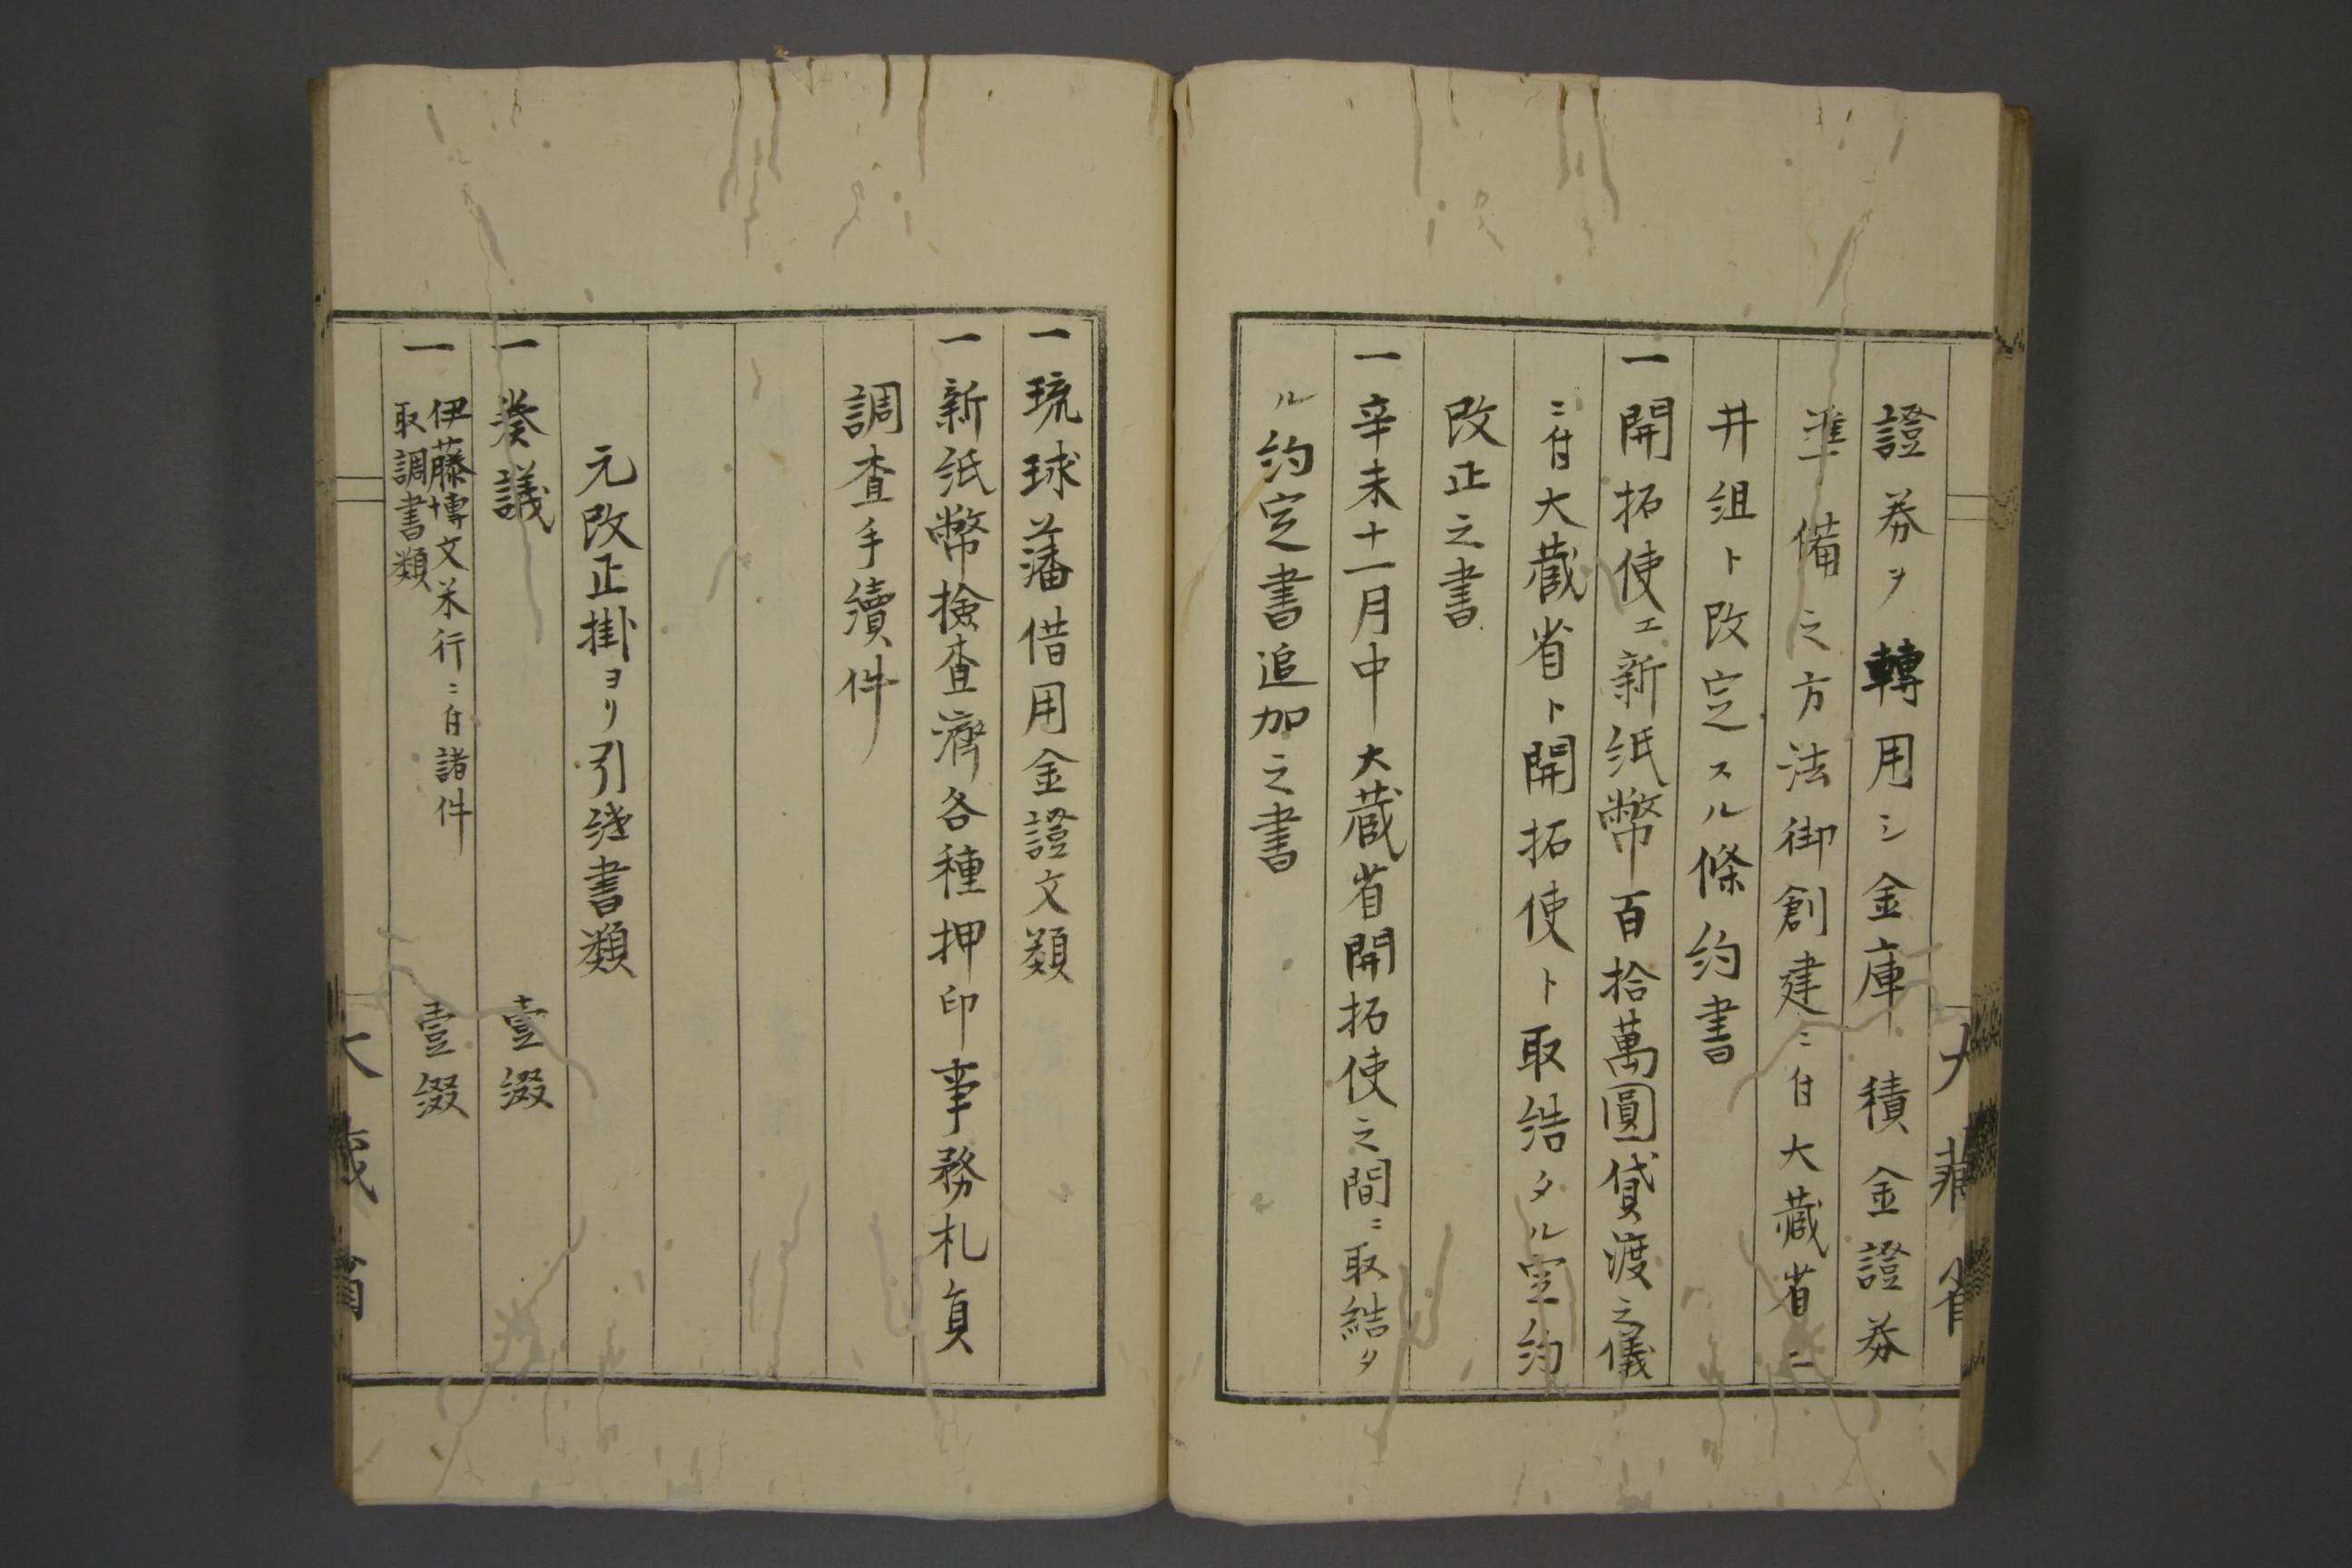 證券ヲ轉用シ金庫積金證券
準備之方法御創建ニ付大藏省ニ
井組ト改定スル條約書
一開拓使エ新紙幣百拾萬圓貸渡之儀
ニ付大藏省ト開拓使ト取結タル定約
改正之書
一辛未十一月中大藏省開拓使之間ニ取結タ
ル約定書追加之書
大藏省
一琉球藩借用金證文類
一新紙幣撿查濟各種押印事務札員
調查手續件
元改正掛ヨリ引继書類
一癸議 壹綴
一伊藤博文米行ニ付諸件
取調書類 壹綴
大藏省